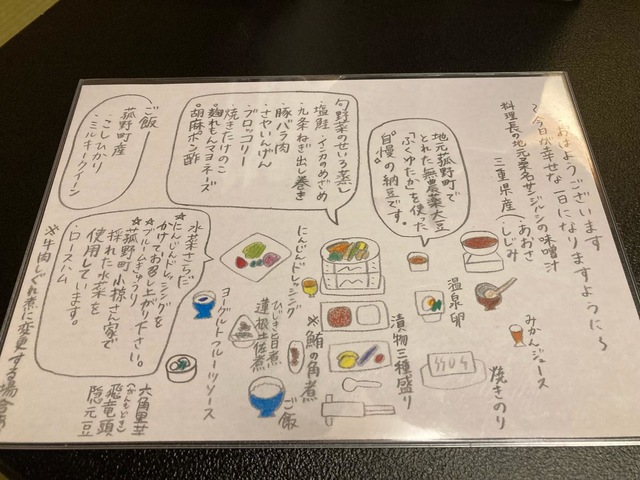 〜おはようございます
〜今日が幸せな一日になりますように〜
料理長の地元桑名サンジルシの味噌汁
三重県産(・あおさ
・しじみ
地元菰野町で
とれた無農薬大豆
「ふくゆたか」を使った
"自慢"の納豆です。
旬野菜のせいろ蒸し
・塩鮭・インカのめざめ
・九条ねぎ出し巻き
・豚バラ肉
・さやいんげん
・ブロッコリー
・焼きたけのこ
・麹れもんマヨネーズ
・胡麻ポン酢
ご飯
菰野町産
・こしひかり
・ミルキークイーン
水菜さらだ
★にんじんドレッシングを
かけてお召し上がり下さい。
★ブルームきゅうり
★菰野町小椋さん家で
採れた水菜を
使用しています。
・ロースハム
みかんジュース
温泉卵
焼きのり
漬物三種盛り
にんじんドレッシング
※鮪の角煮
ご飯
ひじき旨煮
蓮根土佐煮
ヨーグルトフルーツソース
六角里芋
(がんもどき)
飛竜頭
隠元豆
※牛肉しぐれ煮に変更する場合あ